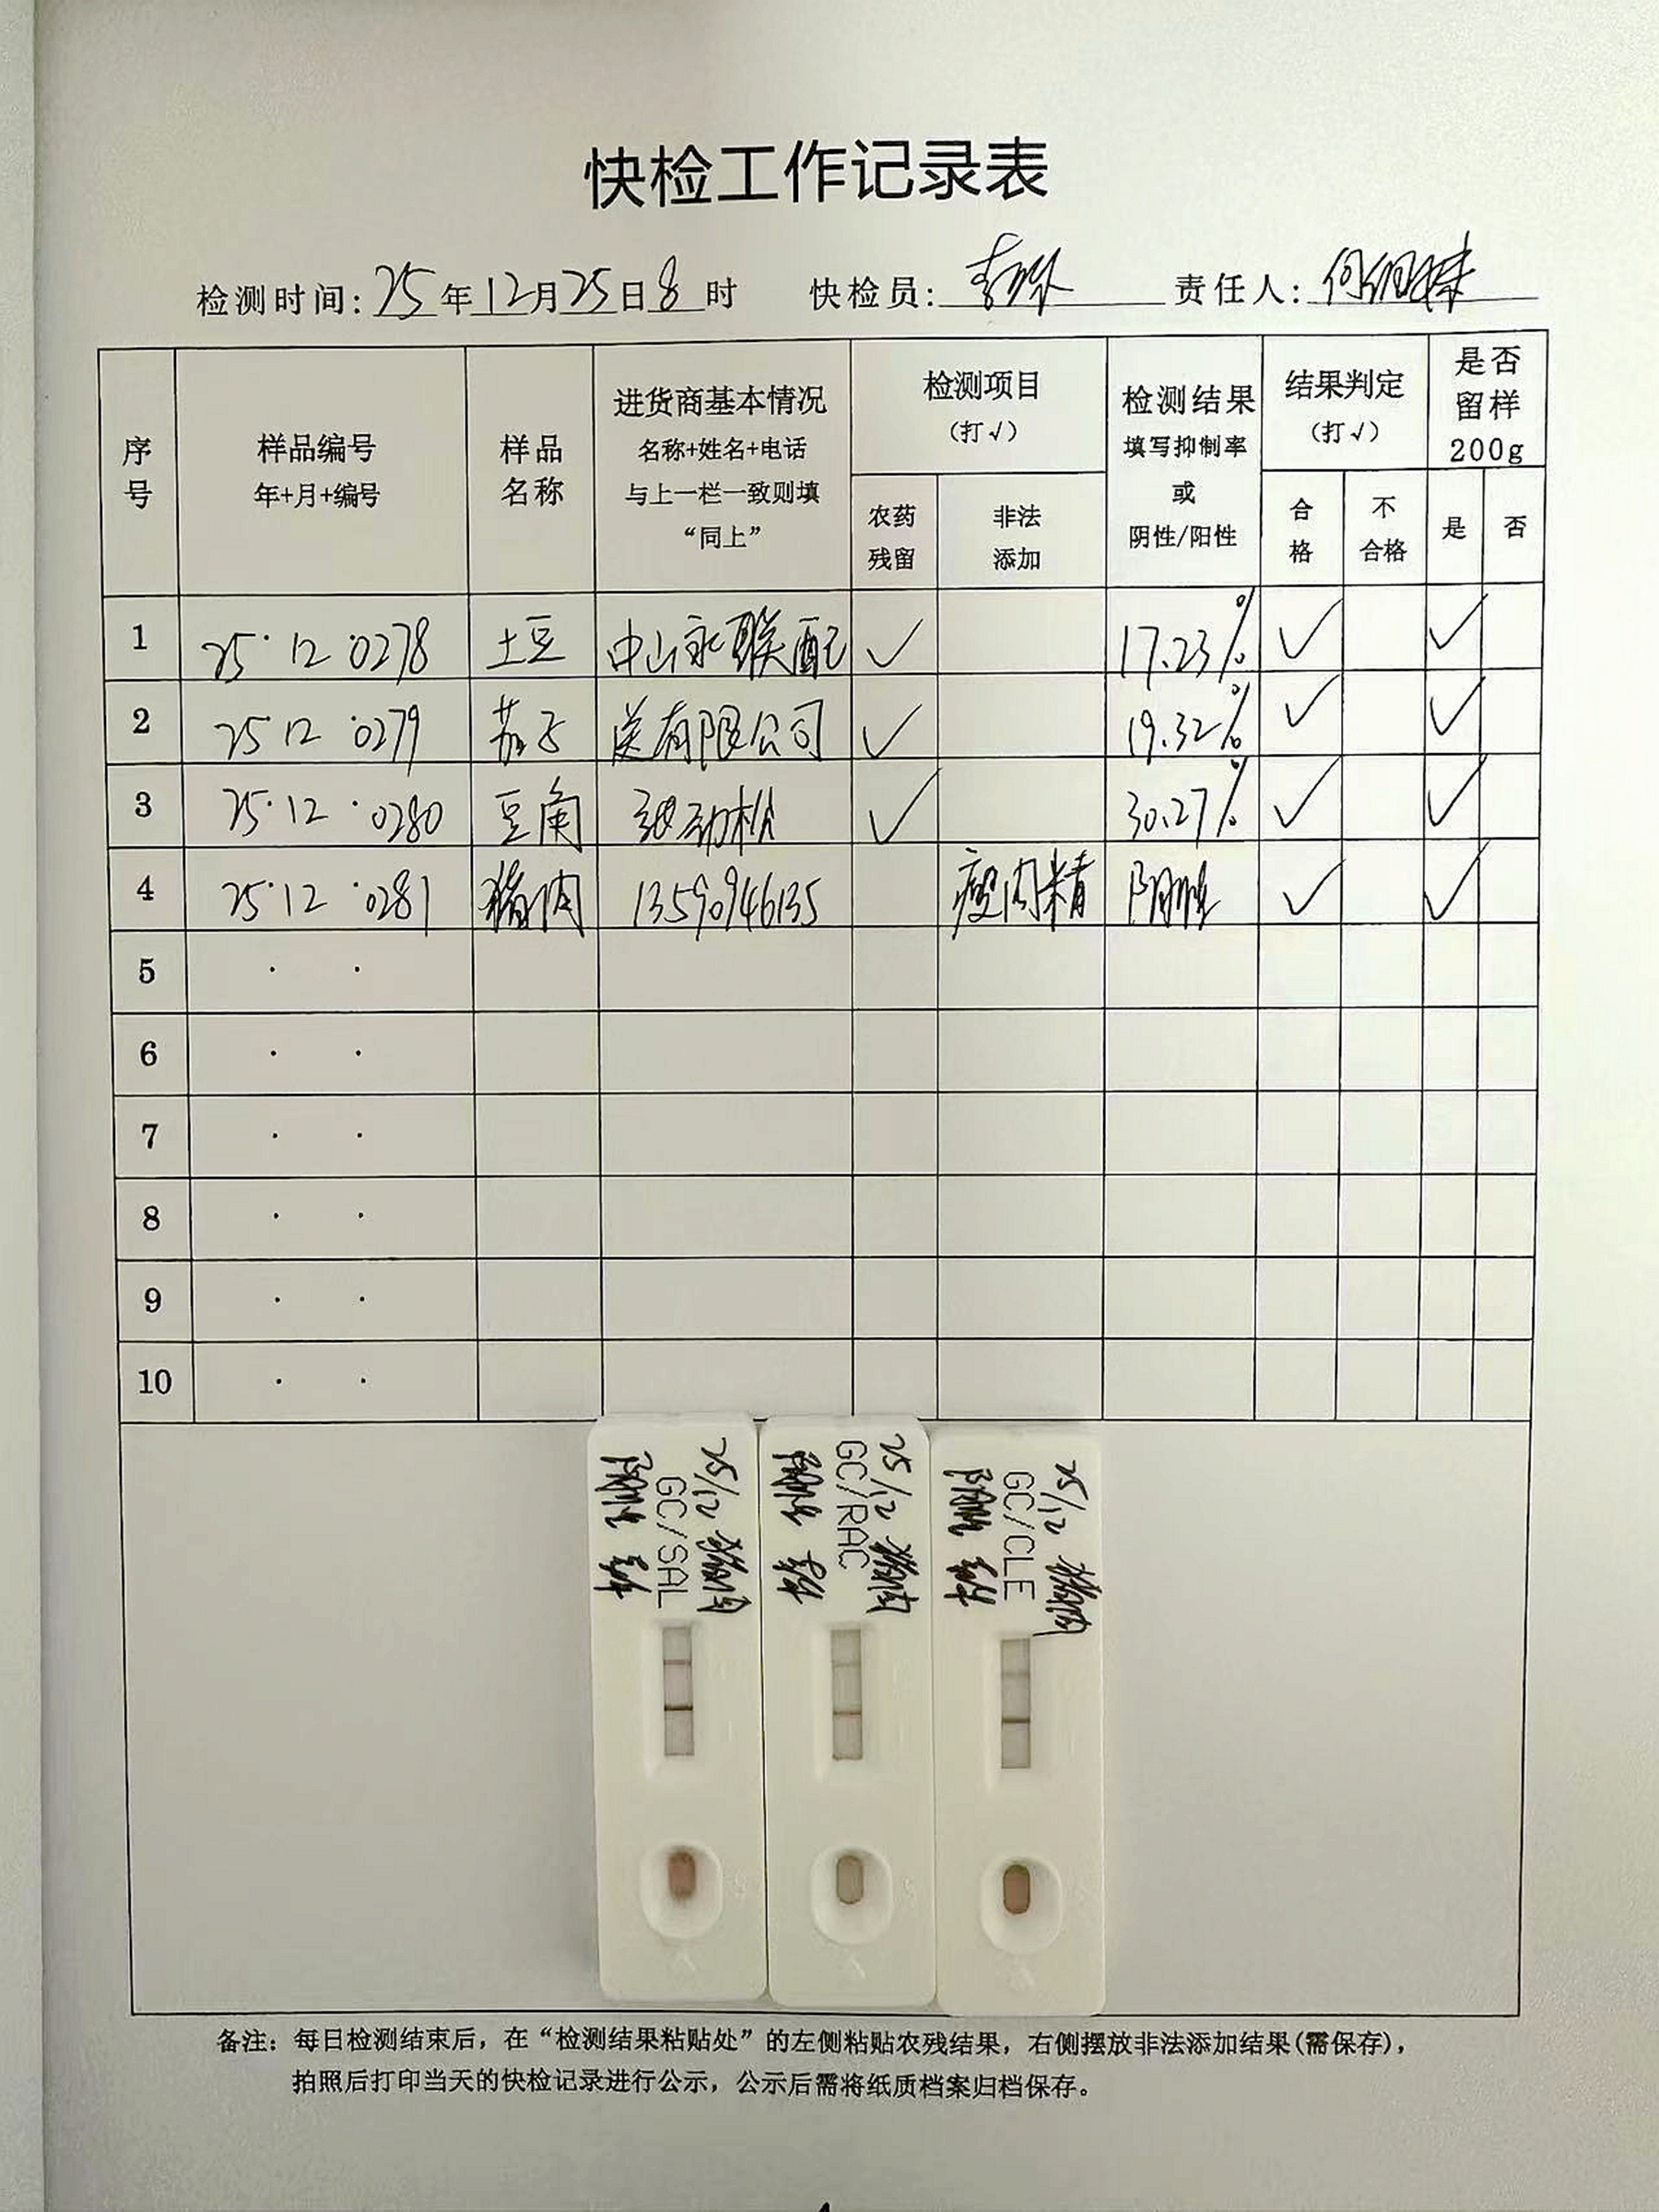 快检工作记录表
检测时间: 25年12月25日8时 快检员: 责任人:
序号 样品编号 年+月+编号 样品名称 进货商基本情况 名称+姓名+电话 与上一栏一致则填“同上” 检测项目 (打√) 农药残留 非法添加 检测结果 填写抑制率 或 阴性/阳性 结果判定 (打√) 合格 不合格 是否留样200g 是 否
1 25·12·0278 土豆 中山永联配 √ 17.23% √ √
2 25·12·0279 茄子 送有限公司 √ 19.32% √ √
3 25·12·0280 豆角 劲松 √ 30.27% √ √
4 25·12·0281 猪肉 13590946135 瘦肉精 阴性 √ √
5 · ·
6 · ·
7 · ·
8 · ·
9 · ·
10 · ·
25/12 猪肉
GC/SAL
阴性
25/12 猪肉
GC/RAC
阴性
25/12 猪肉
GC/CLE
阴性
备注: 每日检测结束后，在“检测结果粘贴处”的左侧粘贴农残结果，右侧摆放非法添加结果(需保存)，
拍照后打印当天的快检记录进行公示，公示后需将纸质档案归档保存。